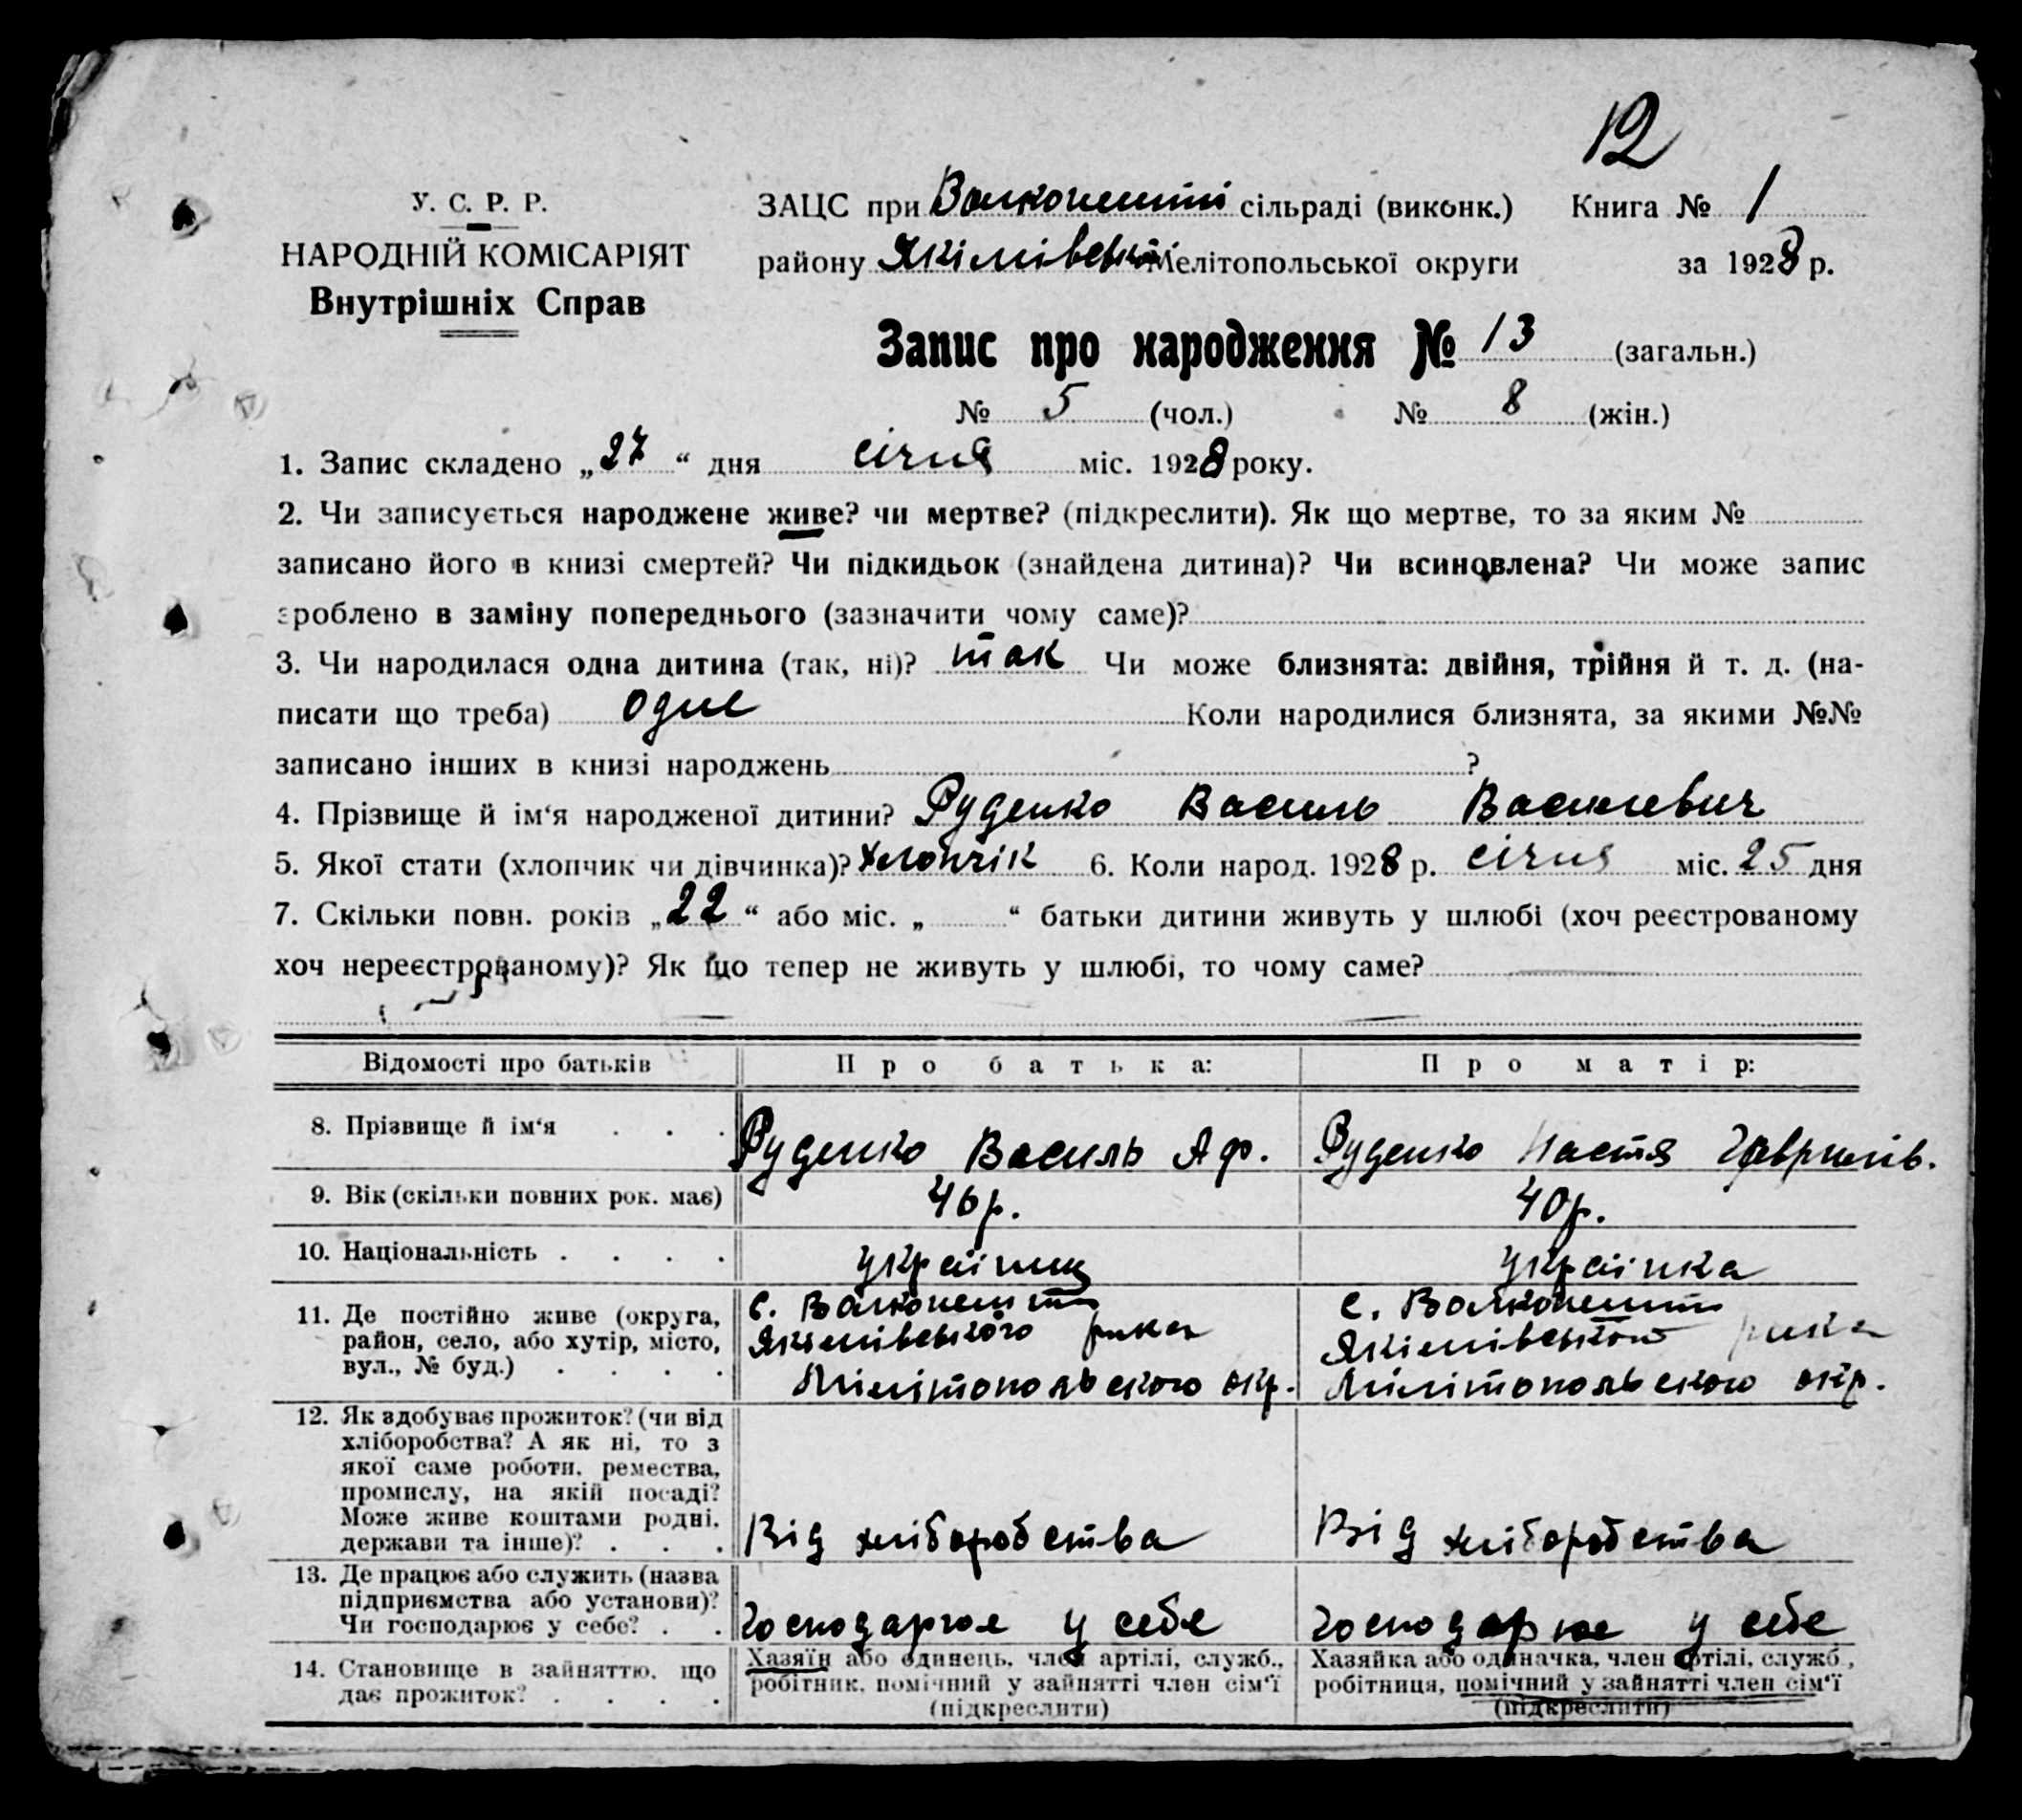 12
У. С. Р. Р.
НАРОДНІЙ КОМІСАРІЯТ
Внутрішніх Справ
ЗАЦС при Волконешті сільраді (виконк.) Книга № 1
району Якімівськ. Мелітопольської округи за 1928 р.
Запис про народження № 13 (загальн.)
№ 5 (чол.) № 8 (жін.)
1. Запис складено „27“ дня січня міс. 1928 року.
2. Чи записується народжене живе? чи мертве? (підкреслити). Як що мертве, то за яким №
записано його в книзі смертей? Чи підкидьок (знайдена дитина)? Чи всиновлена? Чи може запис
зроблено в заміну попереднього (зазначити чому саме)?
3. Чи народилася одна дитина (так, ні)? так Чи може близнята: двійня, трійня й т. д. (на-
писати що треба) одне Коли народилися близнята, за якими №№
записано інших в книзі народжень ?
4. Прізвище й ім‘я народженої дитини? Руденко Василь Васильевич
5. Якої стати (хлопчик чи дівчинка)? Хлопчік 6. Коли народ. 1928 р. січня міс. 25 дня
7. Скільки повн. років „22“ або міс. „ “ батьки дитини живуть у шлюбі (хоч реєстрованому
хоч нереєстрованому)? Як що тепер не живуть у шлюбі, то чому саме?
Відомості про батьків Про батька: Про матір:
8. Прізвище й ім‘я . . . Руденко Василь Аф. Руденко Настя Гаврилів.
9. Вік (скільки повних рок. має) 46р. 40р.
10. Національність . . . . українець українка
11. Де постійно живе (округа,
район, село, або хутір, місто,
вул., № буд.) . . . .
с. Волконешти
Якімівського
Мілітопольского окр.
с. Волконешти
Якімівського
Мілітопольского окр.
12. Як здобуває прожиток? (чи від
хліборобства? А як ні, то з
якої саме роботи, ремества,
промислу, на якій посаді?
Може живе коштами родні,
держави та інше)? . . .
Від хліборобства Від хліборобства
13. Де працює або служить (назва
підприємства або установи)?
Чи господарює у себе? . .
господарює у себе господарює у себе
14. Становище в зайняттю, що
дає прожиток? . . . .
Хазяїн або одинець, член артілі, служб.,
робітник, помічний у зайнятті член сім‘ї
(підкреслити)
Хазяйка або одиначка, член артілі, служб.,
робітниця, помічний у зайнятті член сім‘ї
(підкреслити)